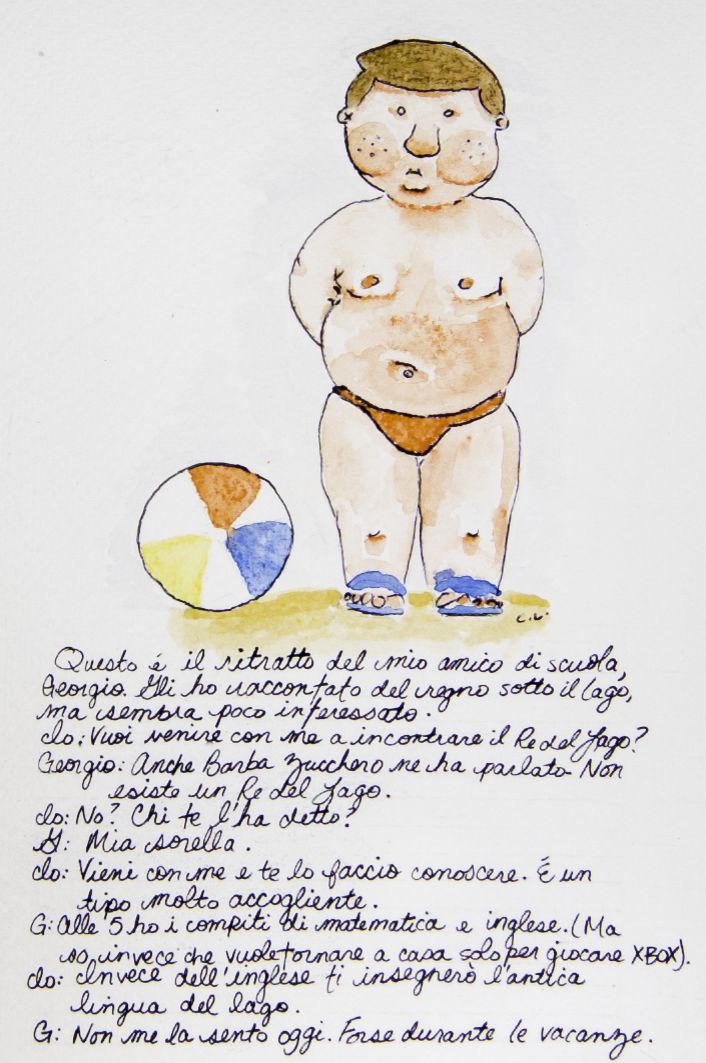 c.v.
Questo é il ritratto del mio amico di scuola,
Georgio. Gli ho raccontato del regno sotto il lago,
ma sembra poco interessato.
Io: Vuoi venire con me a incontrare il Re del Lago?
Georgio: Anche Barba Zucchero ne ha parlato. Non
esiste un Re del Lago.
Io: No? Chi te l'ha detto?
G: Mia sorella.
Io: Vieni con me e te lo faccio conoscere. É un
tipo molto accogliente.
G: Alle 5 ho i compiti di matematica e inglese. (Ma
so invece che vuole tornare a casa solo per giocare XBOX).
Io: Invece dell'inglese ti insegnerò l'antica
lingua del lago.
G: Non me la sento oggi. Forse durante le vacanze.